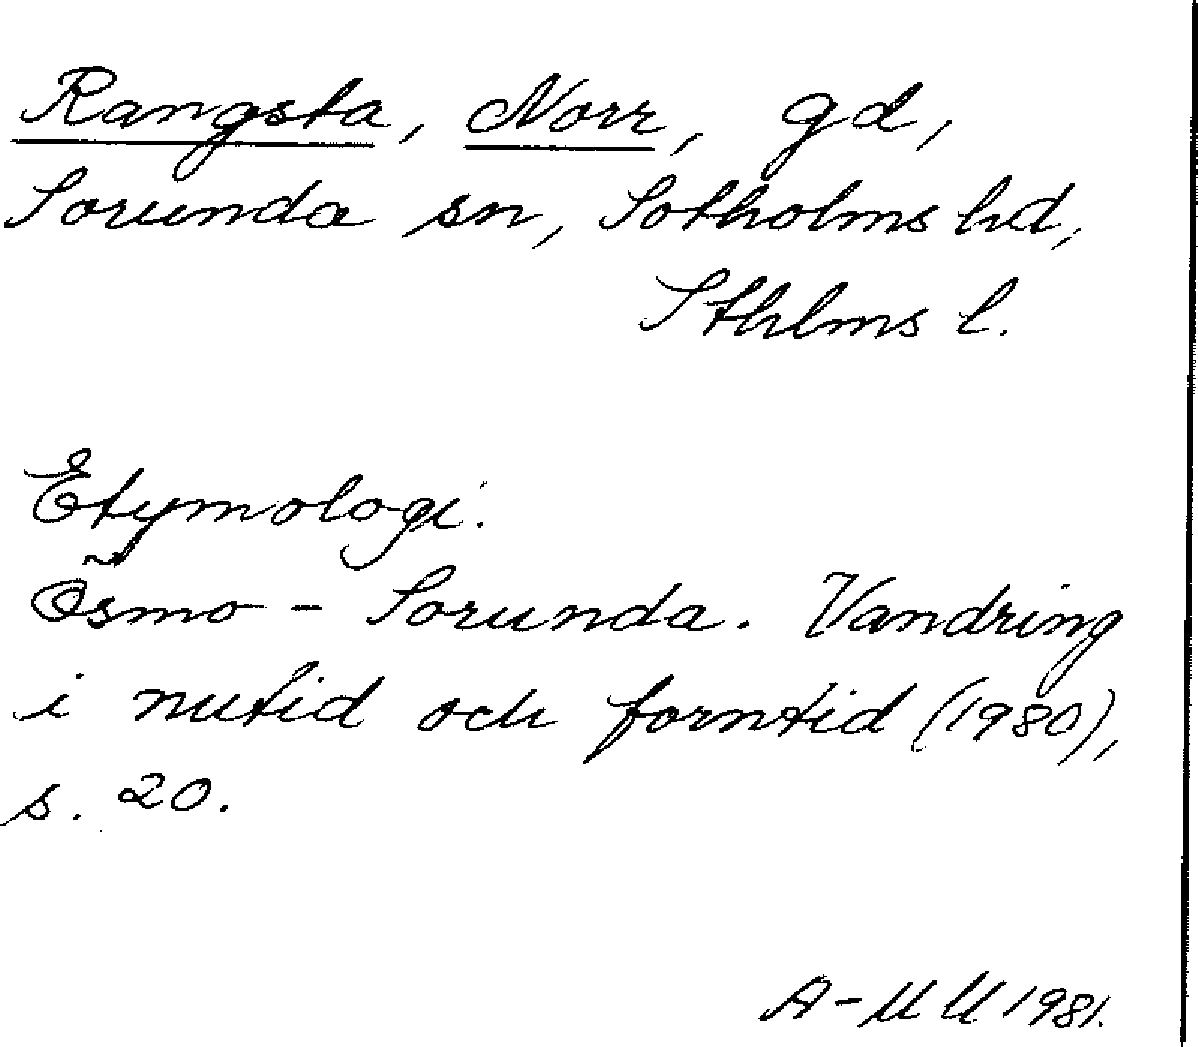 Rangsta, Norr, gd,
Sorunda sn, Sotholms hd,
Sthlms l.
Etymologi.
Ösmo - Sorunda. Vandring
i nutid och forntid (1980),
s. 20.
A-M U 1981.